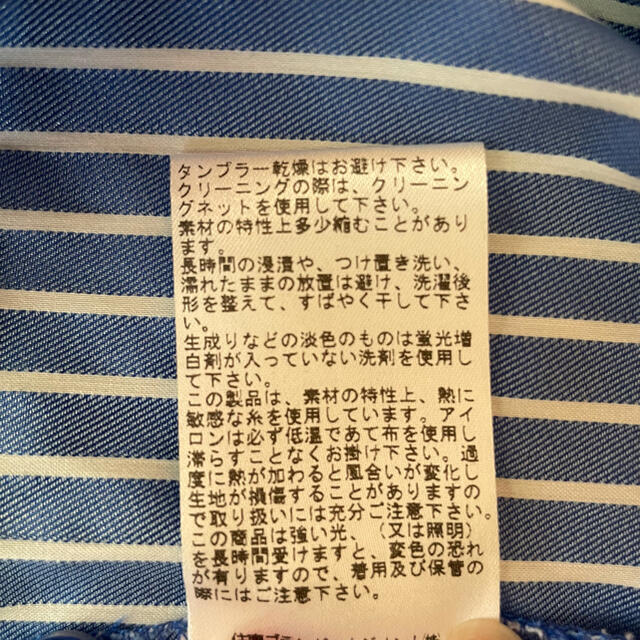 タンブラー乾燥はお避け下さい。
クリーニングの際は、クリーニン
グネットを使用して下さい。
素材の特性上多少縮むことがあり
ます。
長時間の浸漬や、つけ置き洗い、
濡れたままの放置は避け、洗濯後
形を整えて、すばやく干して下さ
い。
生成りなどの淡色のものは蛍光増
白剤が入っていない洗剤を使用し
て下さい。
この製品は、素材の特性上、熱に
敏感な糸を使用しています。アイ
ロンは必ず低温であて布を使用し
滞らすことなくお掛け下さい。過
度に熱が加わると風合いが変化し
生地が損傷することがありますの
で取り扱いには充分ご注意下さい。
この商品は強い光、（又は照明）
を長時間受けますと、変色の恐れ
が有りますので、着用及び保管の
際にはご注意下さい。